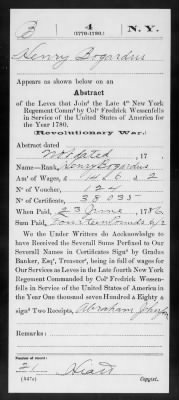 B 4 N.Y.
(1776-1780.)
Henry Bogardus
Appears as shown below on an
Abstract
of the Leves that Joind the Late 4th New York
Regement Commd by Colo Fredrick Wessenfells
in Service of the United States of America for
the Year 1780.
(Revolutionary War.)
Abstract dated
Not dated, 17 .
Name—Rank, Henry Bogardus
Amt of Wages, £ 14.6.2
No of Voucher, 124
No of Certificate, 38035
When Paid, 23 June, 1786
Sum Paid, Fourteen Pounds 6/2
We the Under Writers do Acknowledge to
have Received the Severall Sums Perfixed to Our
Severall Names in Certificates Signd by Gradus
Banker, Esqr, Treasr, being in full of wages for
Our Services as Leves in the Late fourth New York
Regement Commanded by Colol Fredrick Wessen-
fells in Service of the United States of America in
the Year One thousand seven Hundred & Eighty &
signd Two Receipts, Abraham
Remarks:
Number of record:
21 Heart
(547c) Copyist.